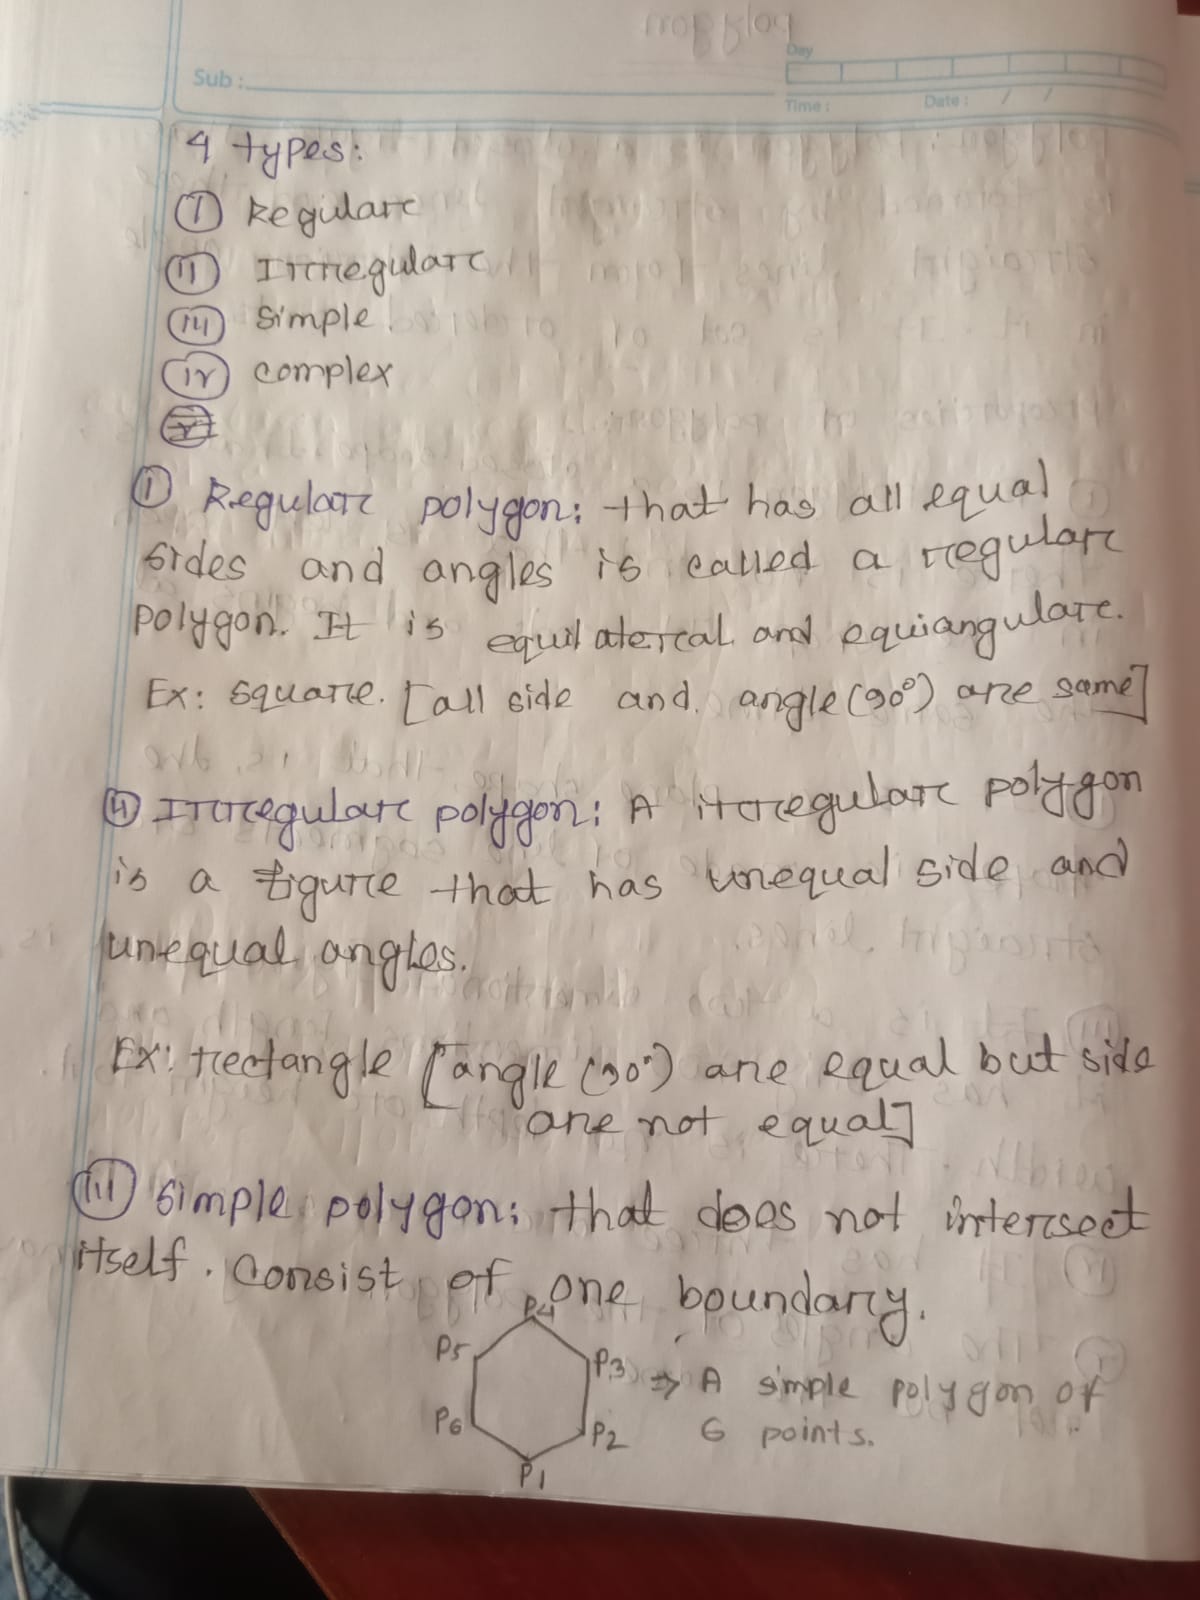 Polygon
Day
Sub :
Time :
Date : / /
4 types:
(I) Regular
(II) Irregular
(III) Simple
(iv) complex
(I) Regular polygon: that has all equal
sides and angles is called a regular
polygon. It is equilateral and equiangular.
Ex: square. [all side and angle (90°) are same]
(II) Irregular polygon: A irregular polygon
is a figure that has unequal side and
unequal angles.
Ex: rectangle [angle (90°) are equal but side
are not equal]
(III) Simple polygon: that does not intersect
itself. Consist of one boundary.
P4
P5
P3 ⇒ A simple polygon of
P6
P2 6 points.
P1